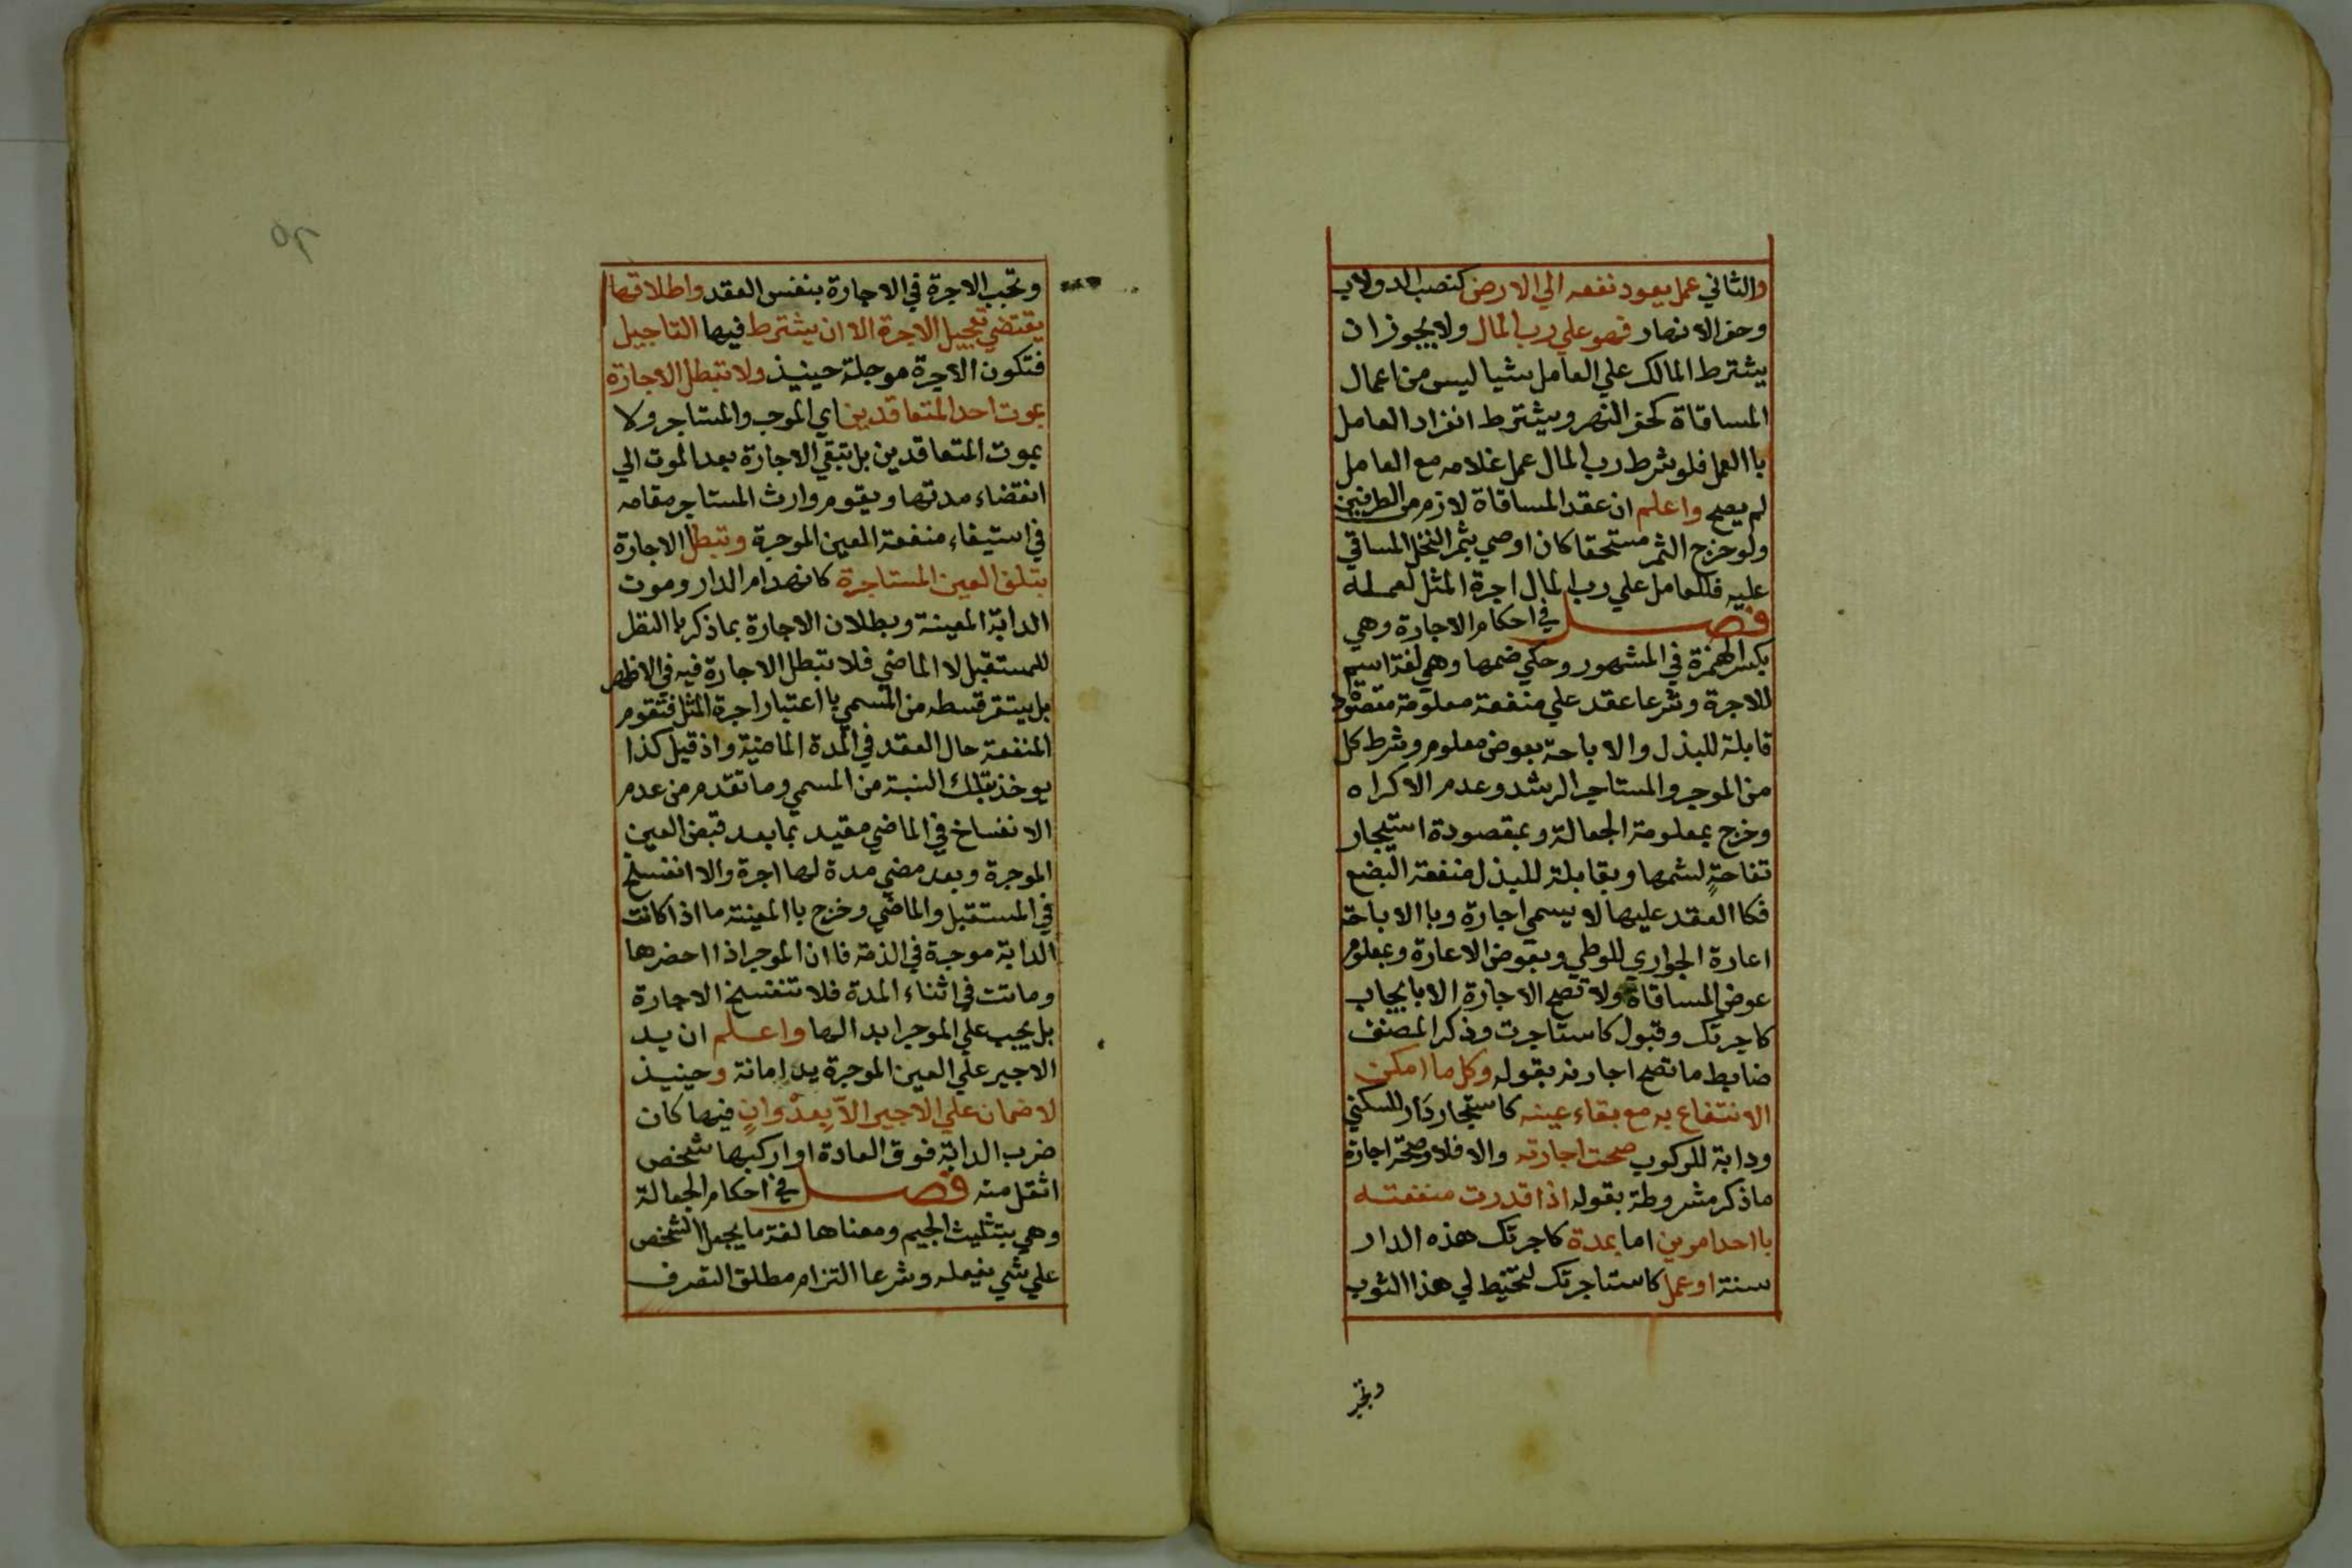 والثاني عمل يعود نفعه الي الارض كنصب الدولاب
وحفر الانهار فهو علي رب المال ولا يجوز ان
يشترط المالك علي العامل شيا ليس من اعمال
المساقاة كحفر النهر ويشترط انفراد العامل
باالعمل فلو شرط رب المال عمل غلامه مع العامل
لم يصح واعلم ان عقد المساقاة لازم من الطرفين
ولو خرج الثمر مستحقا كان اوصي بثمر النخل المساقي
عليه فللعامل علي رب المال اجرة المثل لعمله
فصل في احكام الاجارة وهي
بكسر الهمزة في المشهور وحكي ضمها وهي لغة اسم
للاجرة وشرعا عقد علي منفعة معلومة مقصودة
قابلة للبذل والاباحة بعوض معلوم وشرط كل
من الموجر والمستاجر الرشد وعدم الاكراه
وخرج بمعلومة الجعالة وبمقصودة استيجار
تفاحةٍ لشمها وبقابلة للبذل منفعة البضع
فكاالعقد عليها لا يسمي اجارة وباالاباحة
اعارة الجواري للوطي وبعوض الاعارة وبمعلوم
عوض المساقاة ولا تصح الاجارة الا بايجاب
كاجرتك وقبول كاستاجرت وذكر المصنف
ضابط ما تصح اجارته بقوله وكل ما امكن
الانتفاع به مع بقاء عينه كاستيجار دار للسكني
ودابة للركوب صحت اجارته والا فلا وصحة اجارة
ما ذكر مشروطة بقوله اذا قدرت منفعته
بااحد امرين اما بمدة كاجرتك هذه الدار
سنة او عمل كاستاجرتك لتخيط لي هذا الثوب
وتجب
وتجب الاجرة في الاجارة بنفس العقد واطلاقها
يقتضي تعجيل الاجرة الا ان يشترط فيها التاجيل
فتكون الاجرة موجلة حينيذ ولا تبطل الاجارة
بموت احد المتعاقدين اي الموجر والمستاجر ولا
بموت المتعاقدين بل تبقي الاجارة بعد الموت الي
انقضاء مدتها ويقوم وارث المستاجر مقامه
في استيفاء منفعة العين الموجرة وتبطل الاجارة
بتلف العين المستاجرة كانهدام الدار وموت
الدابة المعينة وبطلان الاجارة بما ذكر باالنظر
للمستقبل لا الماضي فلا تبطل الاجارة فيه في الاظهر
بل يستقر قسطه من المسمي بااعتبار اجرة المثل فتقوم
المنفعة حال العقد في المدة الماضية واذ قيل كذا
يوخذ بتلك النسبة من المسمي وما تقدم من عدم
الانفساخ في الماضي مقيد بما بعد قبض العين
الموجرة وبعد مضي مدة لها اجرة والا انفسخ
في المستقبل والماضي وخرج باالمعينة ما اذا كانت
الدابة موجرة في الذمة فاان الموجر اذا احضرها
وماتت في اثناء المدة فلا تنفسخ الاجارة
بل يجب علي الموجر ابدالها واعلم ان يد
الاجير علي العين الموجرة يد امانة وحينيذ
لا ضمان علي الاجير الاّ بعدْوانٍ فيها كان
ضرب الدابة فوق العادة او اركبها شخص
اثقل منه فصل في احكام الجعالة
وهي بتثليث الجيم ومعناها لغة ما يجعل الشخص
علي شي يفعله وشرعا التزام مطلق التصرف